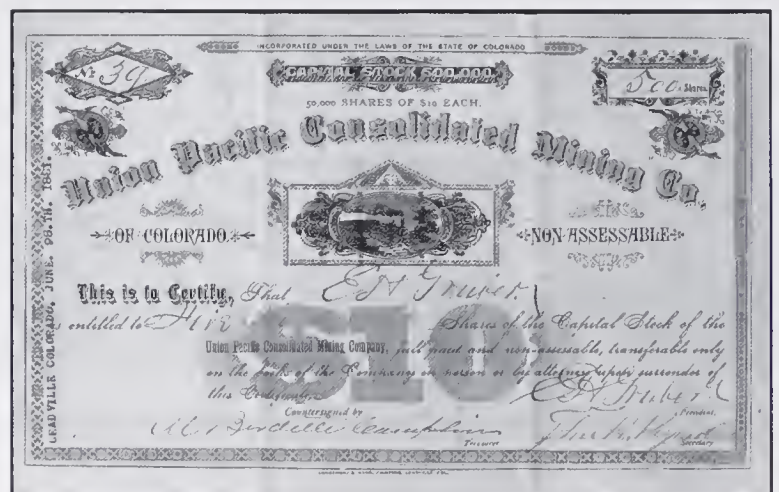 INCORPORATED UNDER THE LAWS OF THE STATE OF COLORADO
No 39
CAPITAL STOCK 500,000.
500 Shares
50,000 SHARES OF $10 EACH.
Union Pacific Consolidated Mining Co.
OF COLORADO.
NON-ASSESSABLE
LEADVILLE COLORADO, JUNE.
1881.
This is to Certify, That
is entitled to Five
Shares of the Capital Stock of the
Union Pacific Consolidated Mining Company, full paid and non-assessable, transferable only
on the book of the Company in person or by attorney upon surrender of
this Certificate
$10
Countersigned by
President.
Treasurer
Secretary